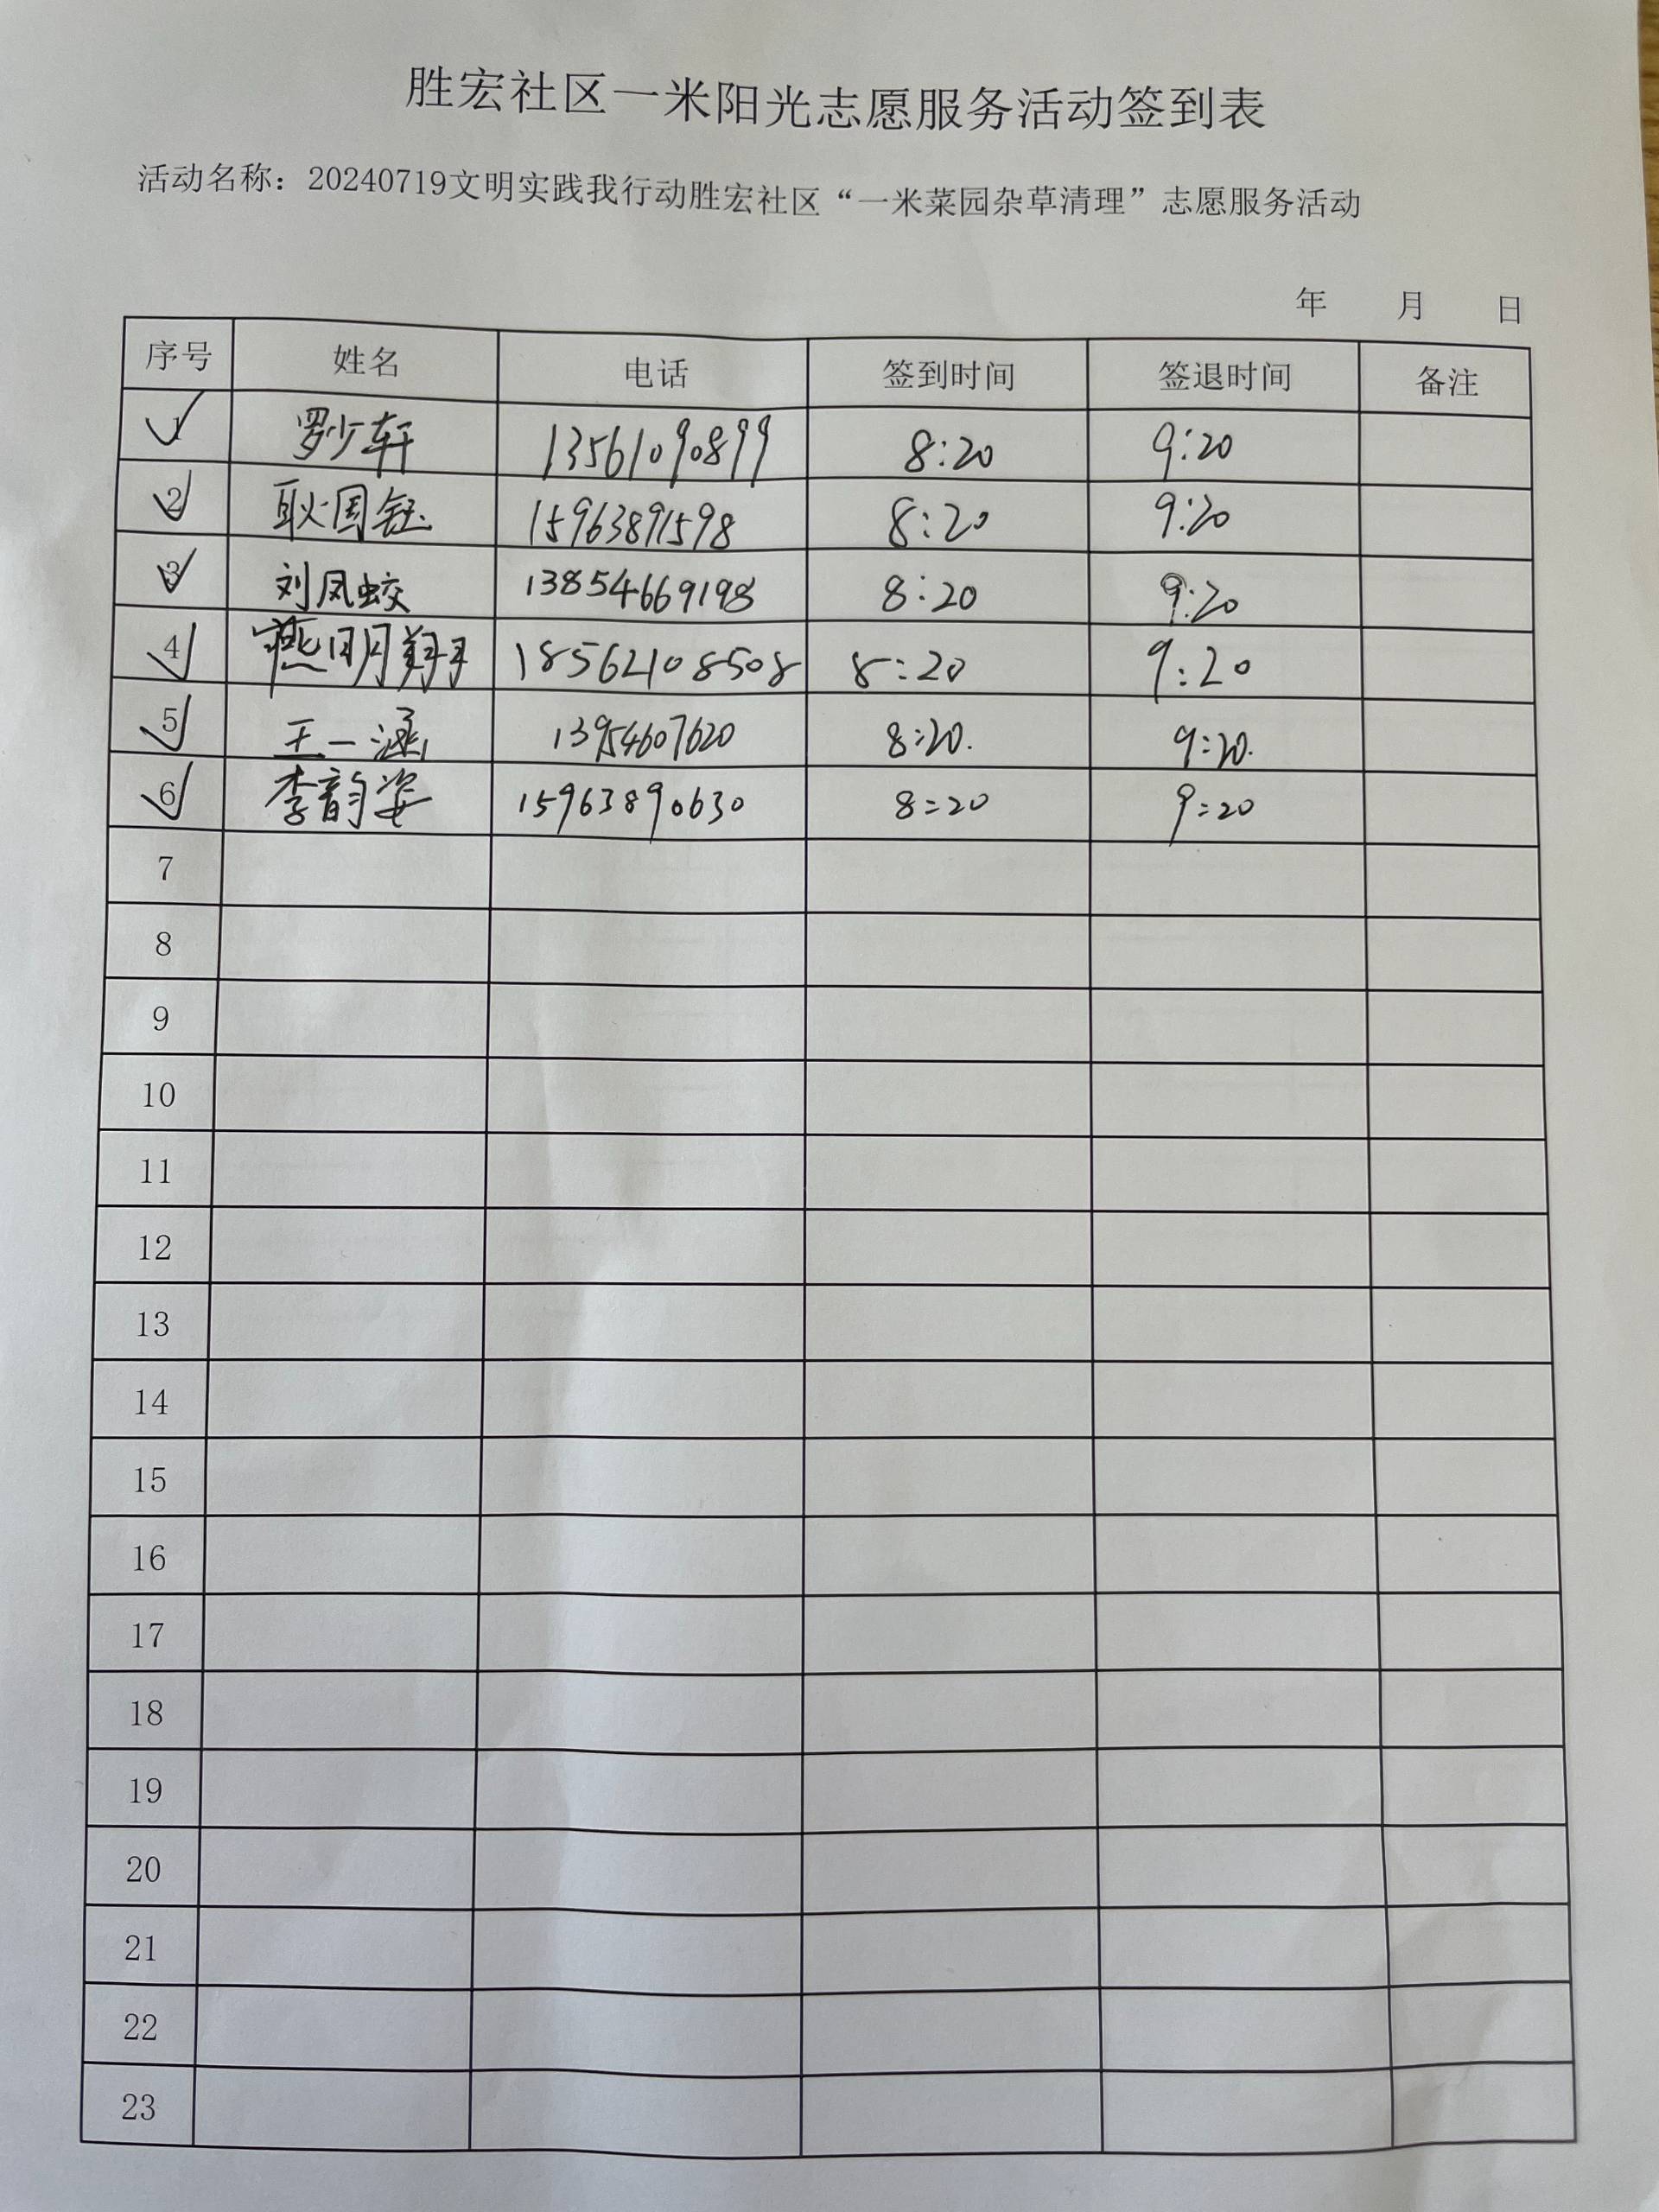 胜宏社区一米阳光志愿服务活动签到表
活动名称：20240719文明实践我行动胜宏社区“一米菜园杂草清理”志愿服务活动
年 月 日
序号 姓名 电话 签到时间 签退时间 备注
1 罗少轩 13561090899 8:20 9:20
2 耿国钰 15963891598 8:20 9:20
3 刘凤蛟 13854669198 8:20 9:20
4 燕明翔 18562108508 8:20 9:20
5 王一涵 13954607620 8:20. 9:20.
6 李韵姿 15963890630 8:20 9:20
7
8
9
10
11
12
13
14
15
16
17
18
19
20
21
22
23